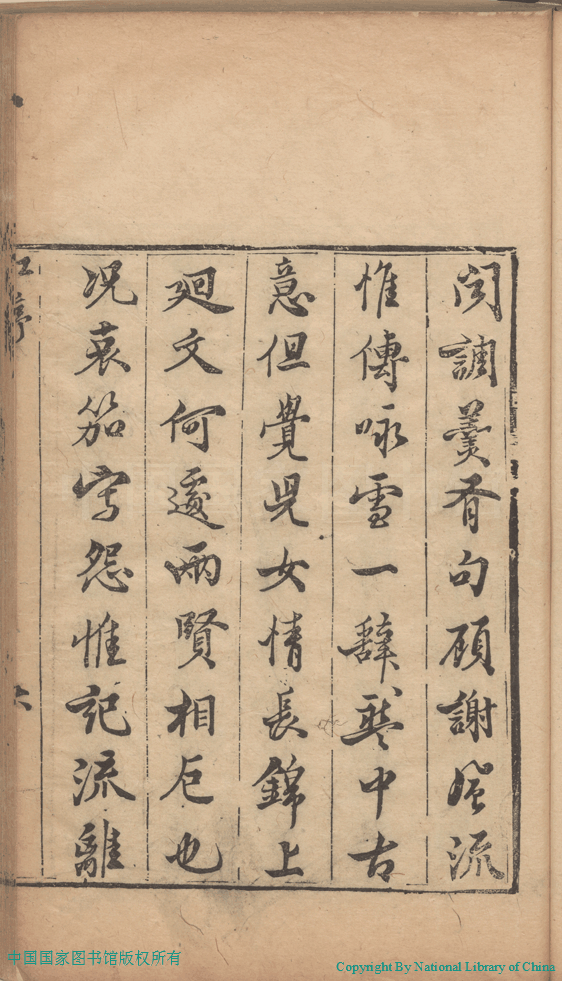 聞調羹有句頋謝風流
惟傳咏雪一辭琴中古
意但覺兒女情長錦上
廻文何處兩賢相厄也
况哀笳寫怨惟記流離
中国国家图书馆版权所有
Copyright By National Library of China